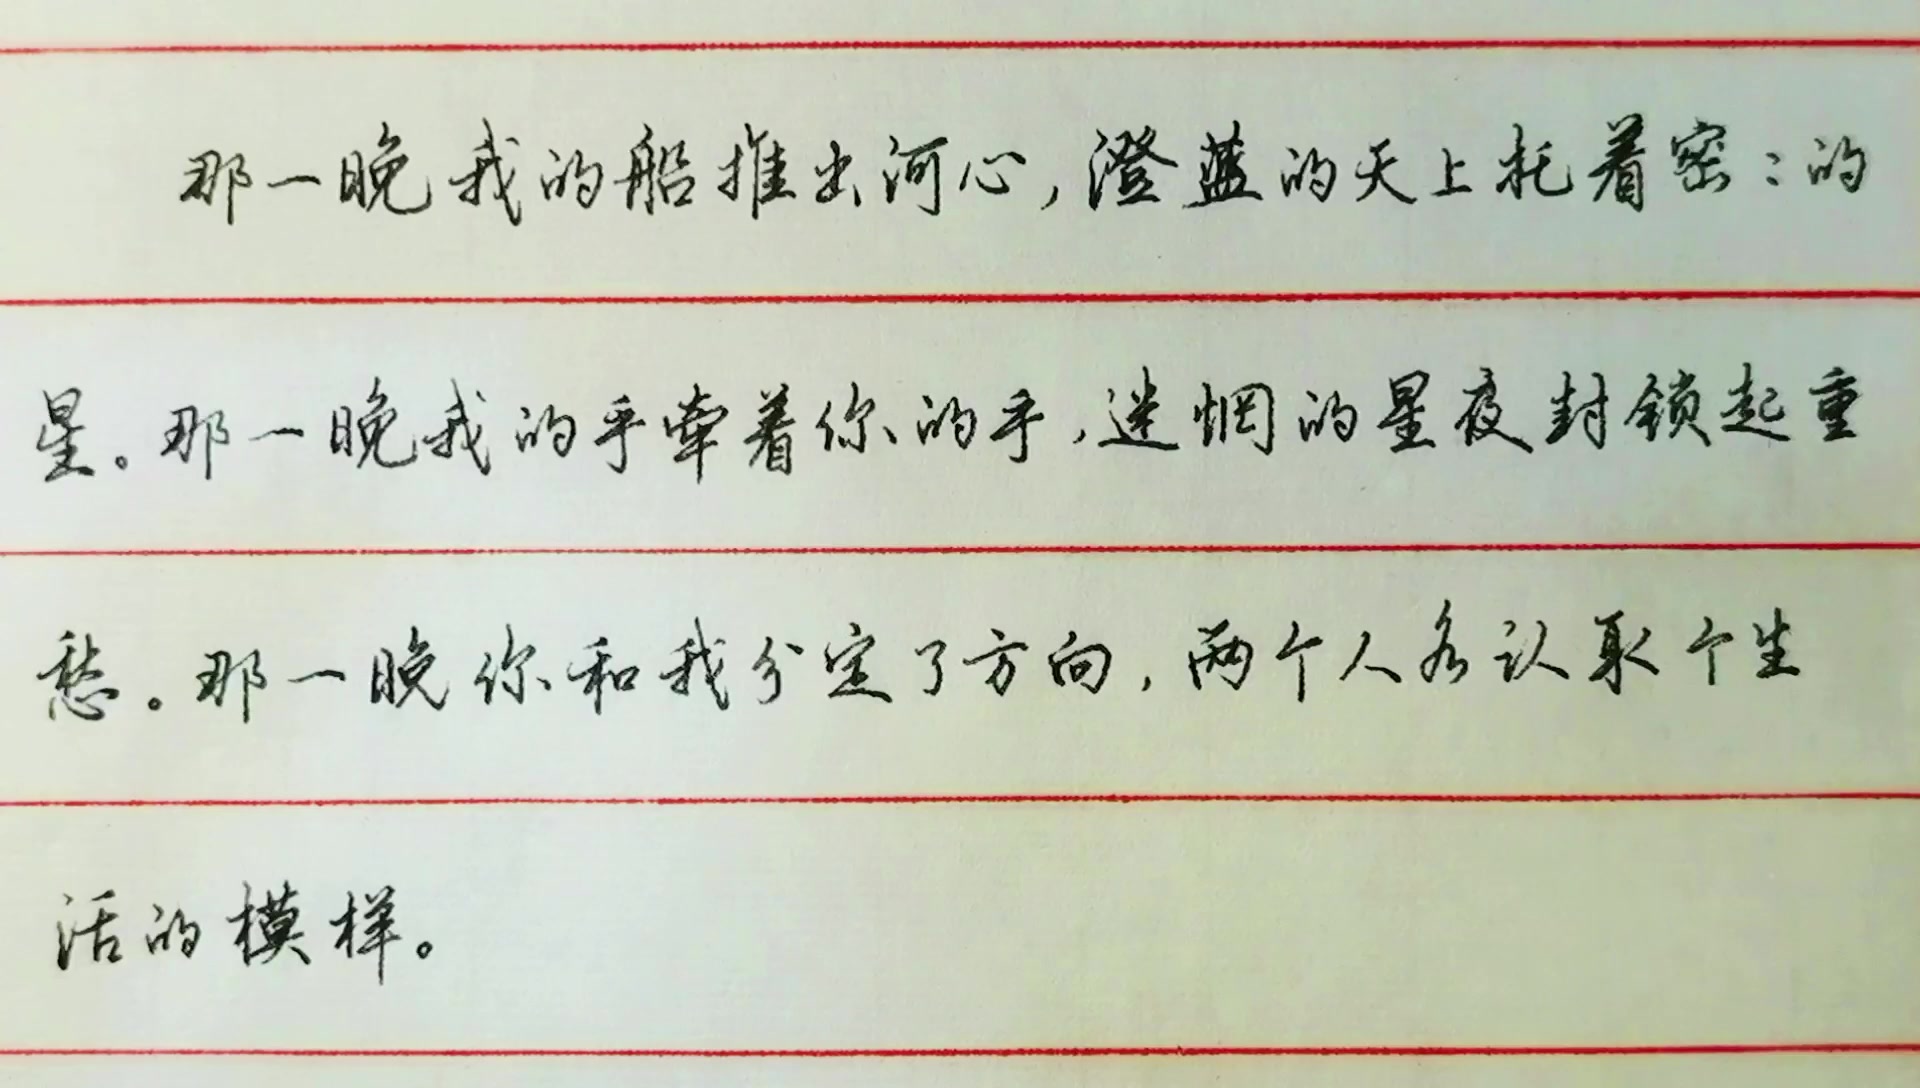 那一晚我的船推出河心，澄蓝的天上托着密：的
星。那一晚我的手牵着你的手，迷惘的星夜封锁起重
愁。那一晚你和我分定了方向，两个人各认取个生
活的模样。